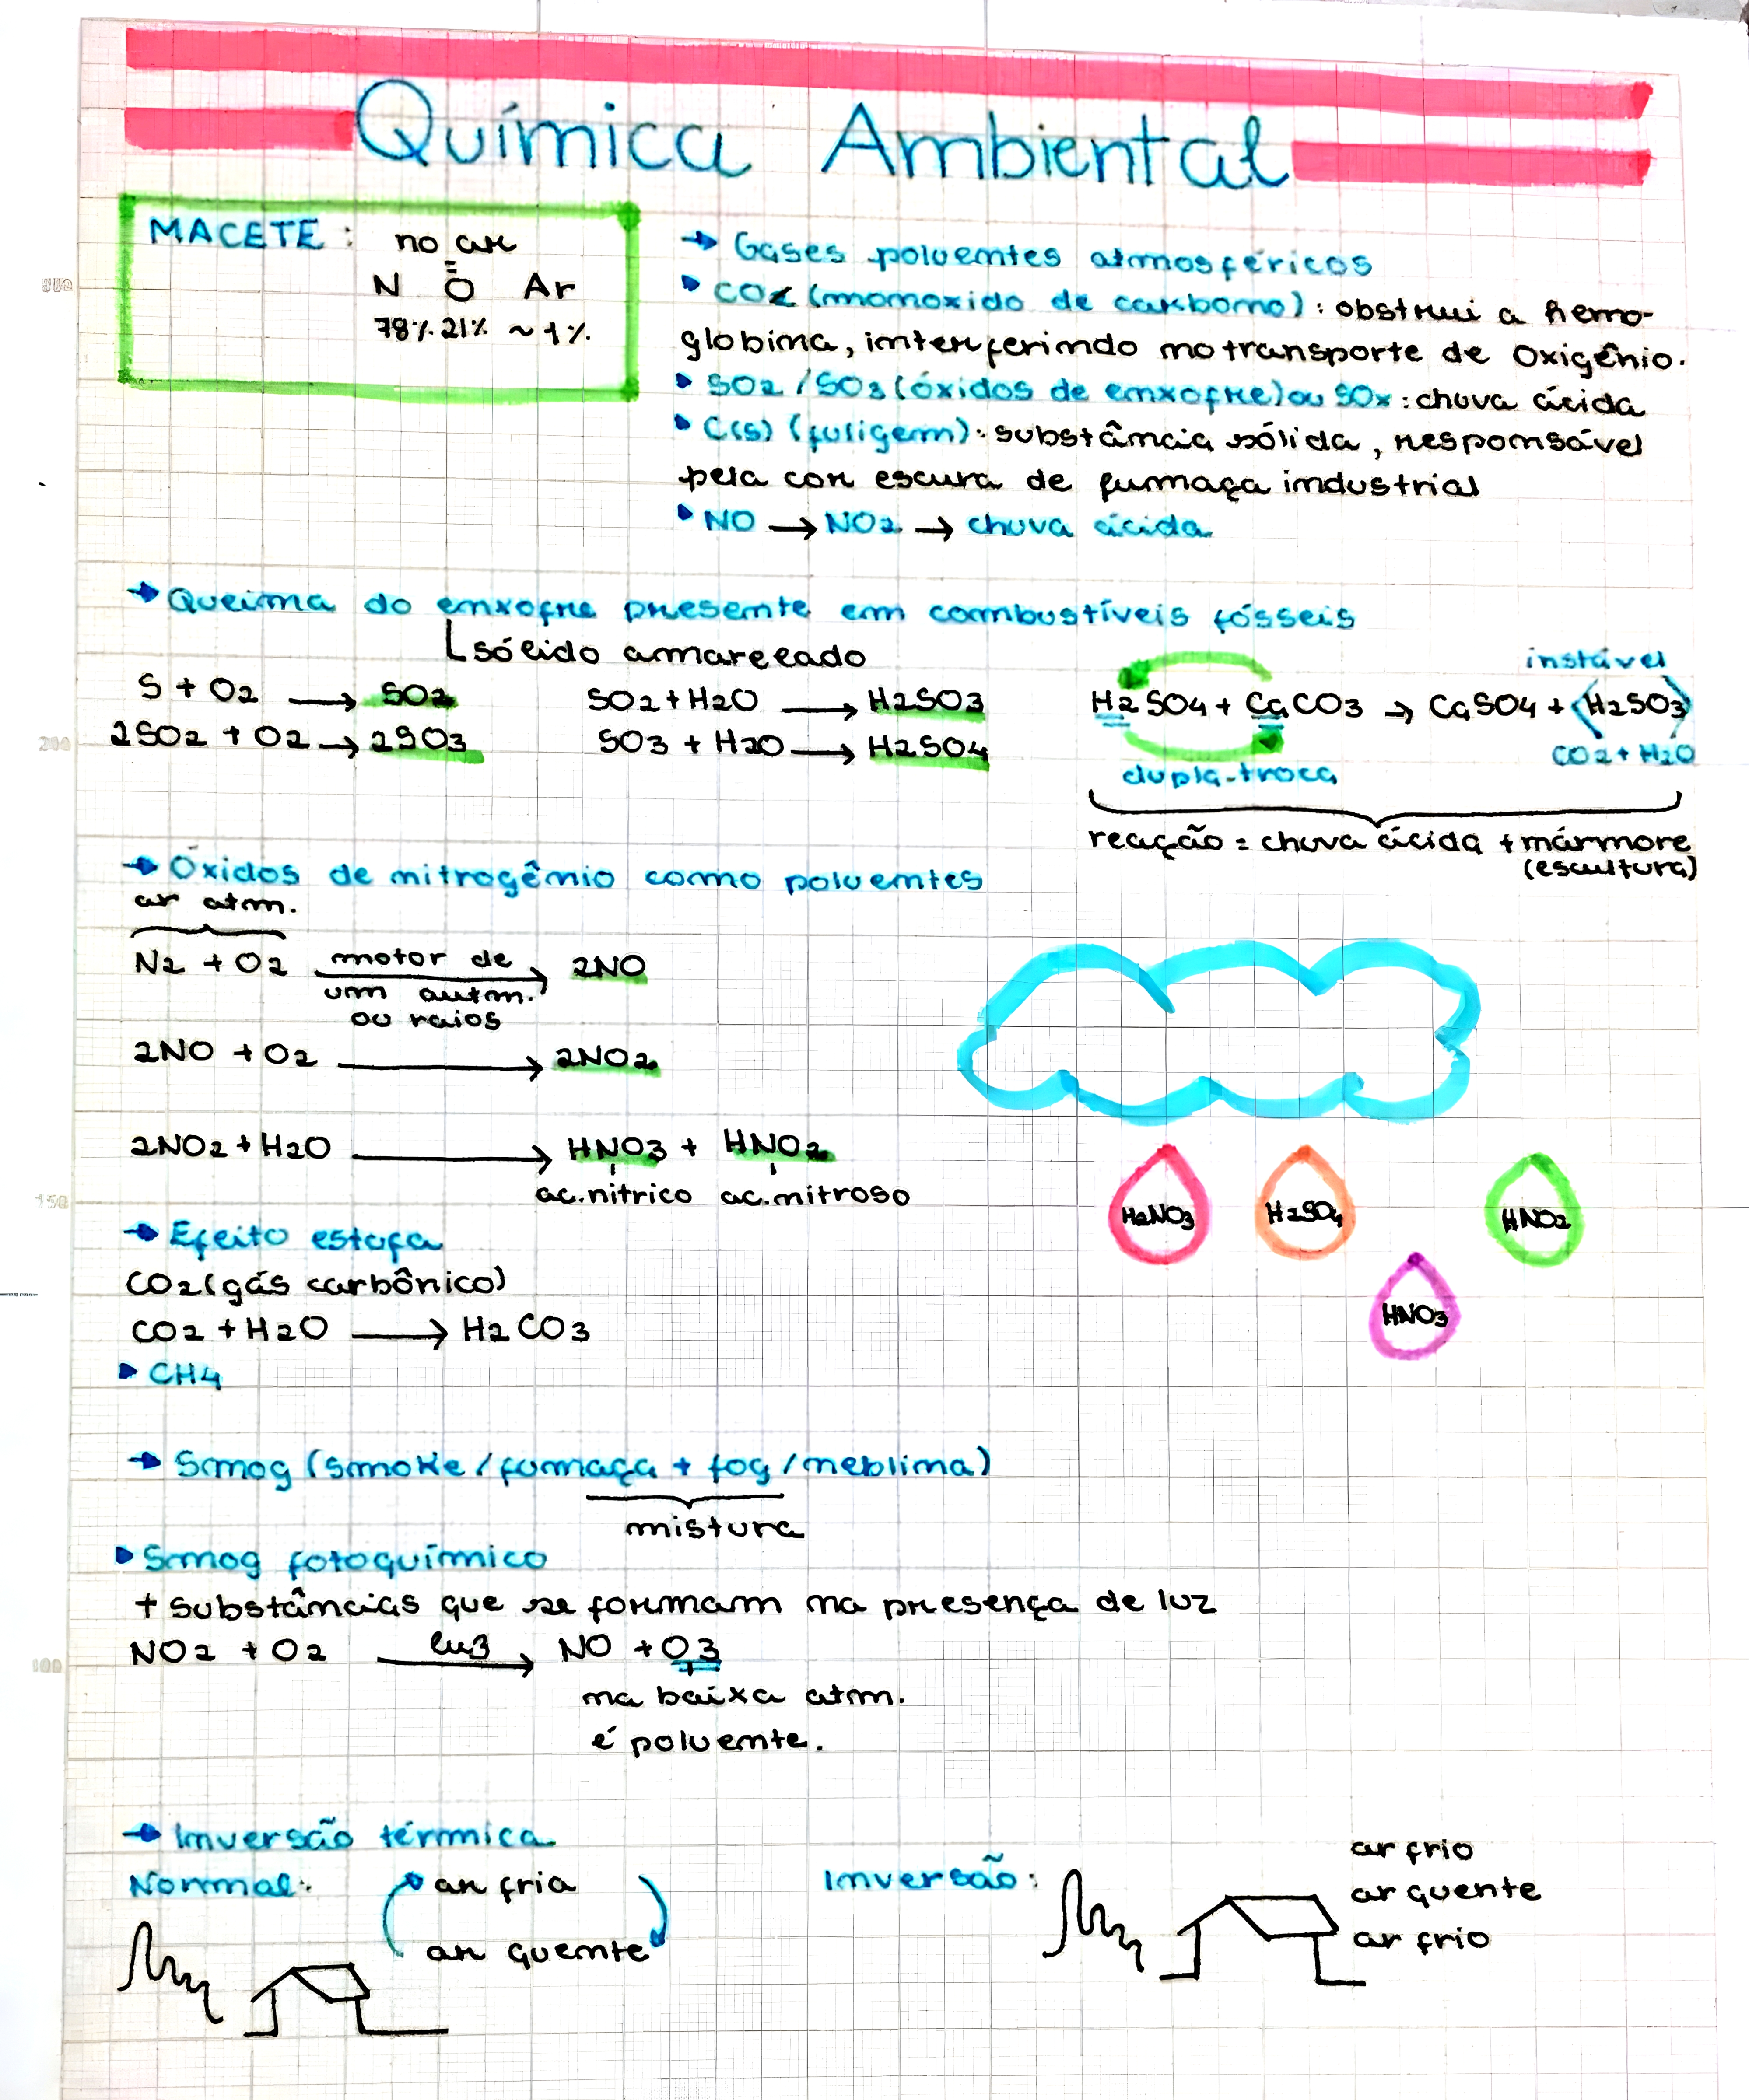 Química Ambiental
MACETE: no ar
N O Ar
78% 21% ~1%
→ Gases poluentes atmosféricos
▸ CO (monoxido de carbono): obstrui a hemo-
globina, interferindo no transporte de Oxigênio.
▸ SO2/SO3 (óxidos de enxofre) ou SOx: chuva ácida
▸ C(s) (fuligem): substância sólida, responsável
pela cor escura de fumaça industrial
▸ NO → NO2 → chuva ácida
→ Queima do enxofre presente em combustíveis fósseis
sólido amarelado
S + O2 → SO2
2SO2 + O2 → 2SO3
SO2 + H2O → H2SO3
SO3 + H2O → H2SO4
instável
H2SO4 + CaCO3 → CaSO4 + H2SO3
CO2 + H2O
dupla-troca
reação = chuva ácida + mármore
(escultura)
→ Óxidos de nitrogênio como poluentes
ar atm.
N2 + O2 motor de → 2NO
um autm.
ou raios
2NO + O2 → 2NO2
2NO2 + H2O → HNO3 + HNO2
ac. nitrico ac. nitroso
H2NO3 H2SO4 HNO2
HNO3
→ Efeito estufa
CO2 (gás carbônico)
CO2 + H2O → H2CO3
▸ CH4
→ Smog (smoke/fumaça + fog/neblina)
mistura
▸ Smog fotoquímico
+ substâncias que se formam na presença de luz
NO2 + O2 luz → NO + O3
na baixa atm.
é poluente.
→ Inversão térmica
Normal: ar fria
ar quente
Inversão: ar frio
ar quente
ar frio
200
150
100